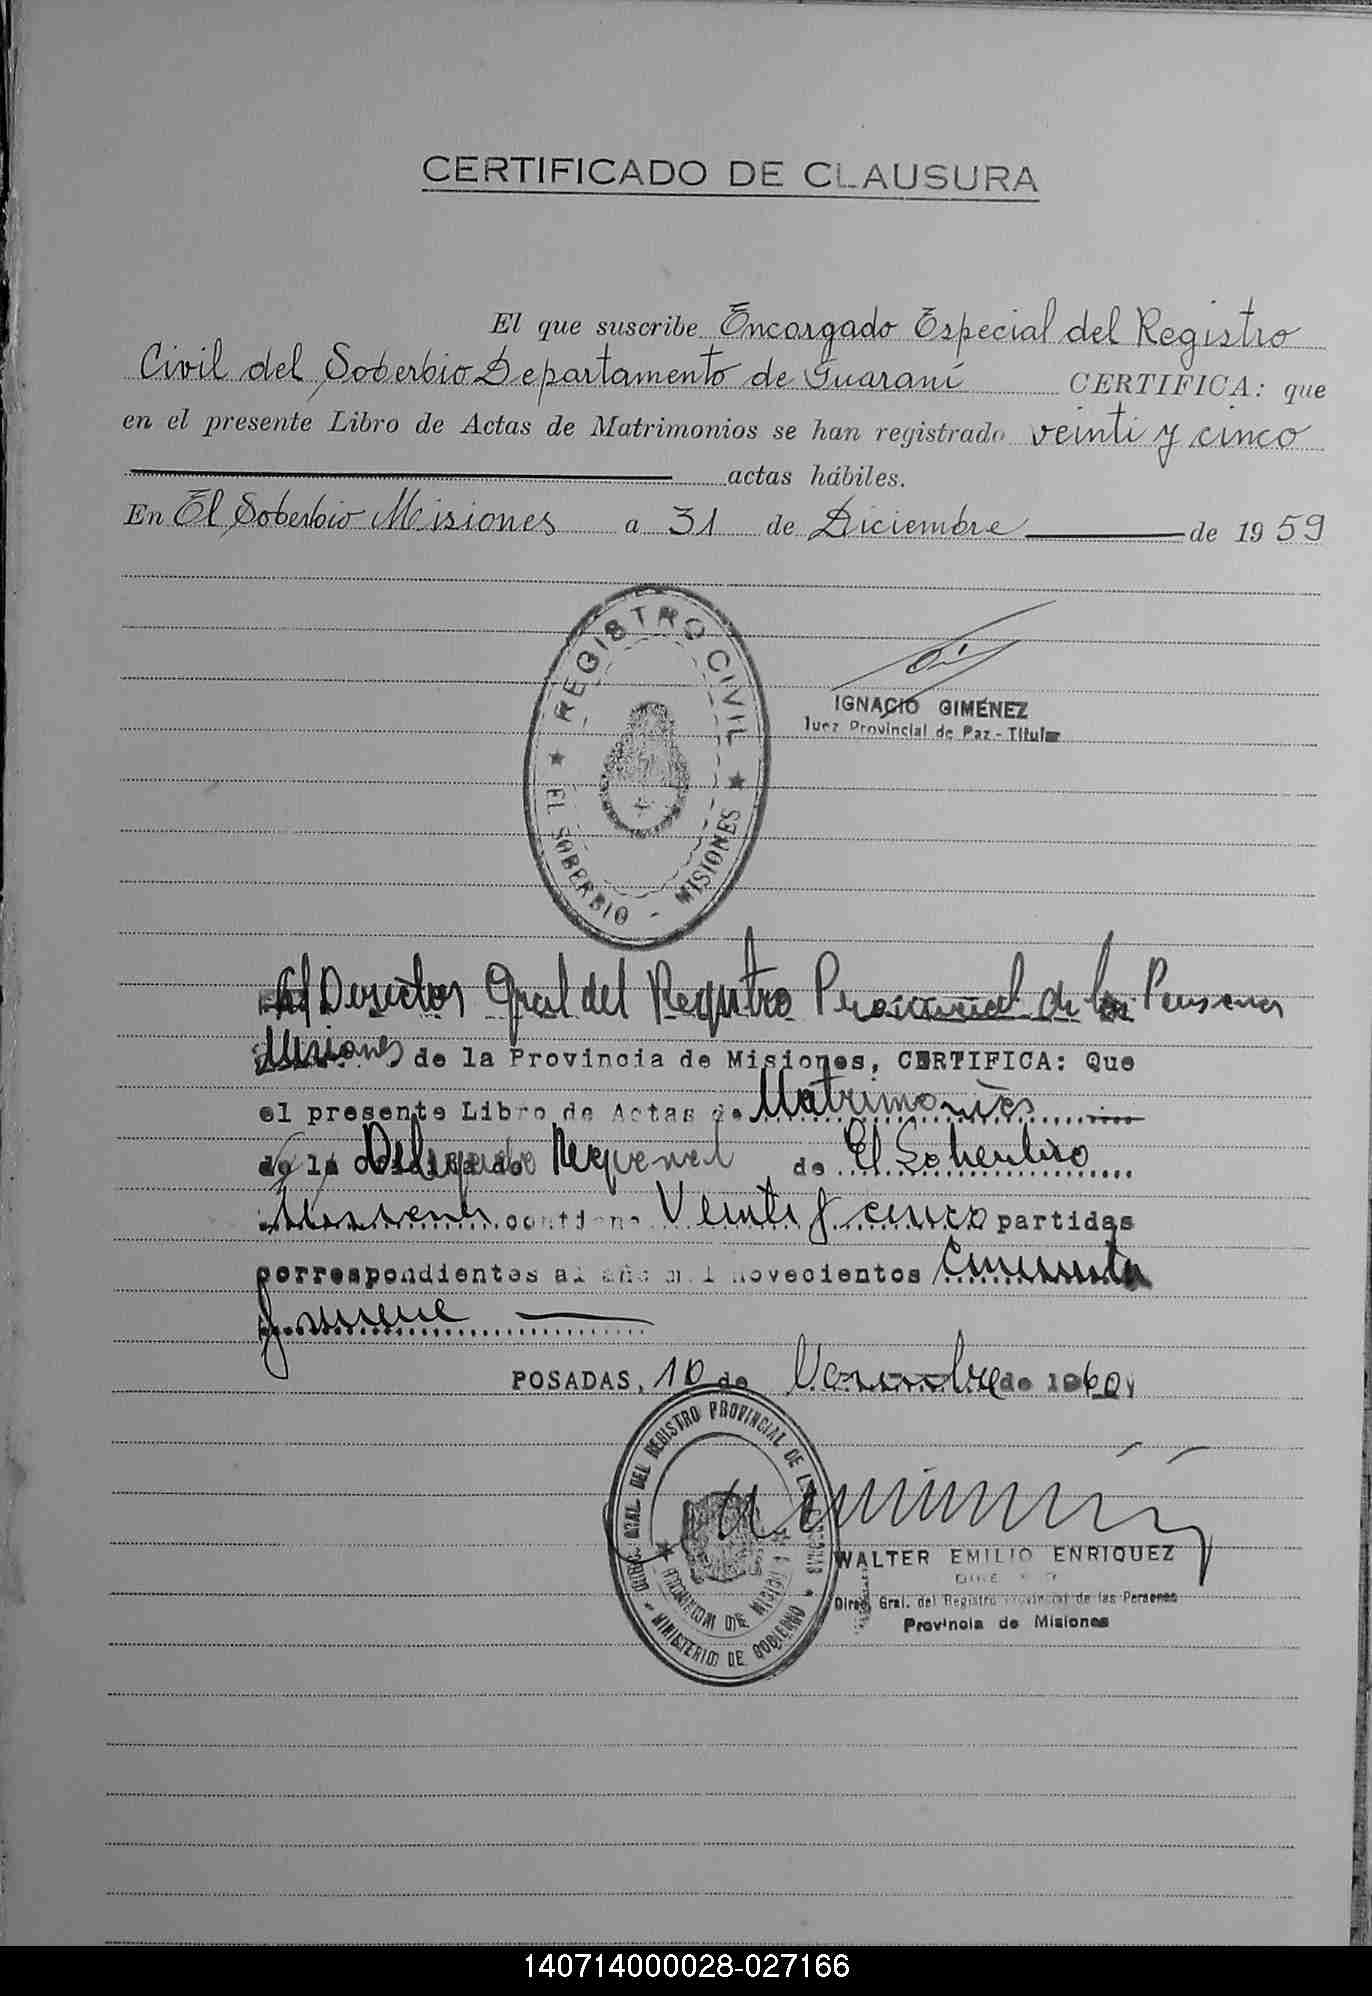 CERTIFICADO DE CLAUSURA
El que suscribe Encargado Especial del Registro
Civil del Soberbio Departamento de Guaraní CERTIFICA: que
en el presente Libro de Actas de Matrimonios se han registrado veinti y cinco
actas hábiles.
En El Soberbio Misiones a 31 de Diciembre de 1959
REGISTRO CIVIL
EL SOBERBIO - MISIONES
IGNACIO GIMENEZ
Juez Provincial de Paz - Titular
El Director Gral del Registro Provincial de las Personas
de la Provincia de Misiones, CERTIFICA: Que
el presente Libro de Actas de Matrimonios
de la de El Soberbio
Misiones contiene Veinti y cinco partidas
correspondientes al año mil novecientos Cincuenta
y nueve
POSADAS, 10 de de 1960
DIREC. GRAL. DEL REGISTRO PROVINCIAL DE LAS PERSONAS
PROVINCIA DE MISIONES
MINISTERIO DE GOBIERNO
WALTER EMILIO ENRIQUEZ
Direc. Gral. del Registro Provincial de las Personas
Provincia de Misiones
140714000028-027166